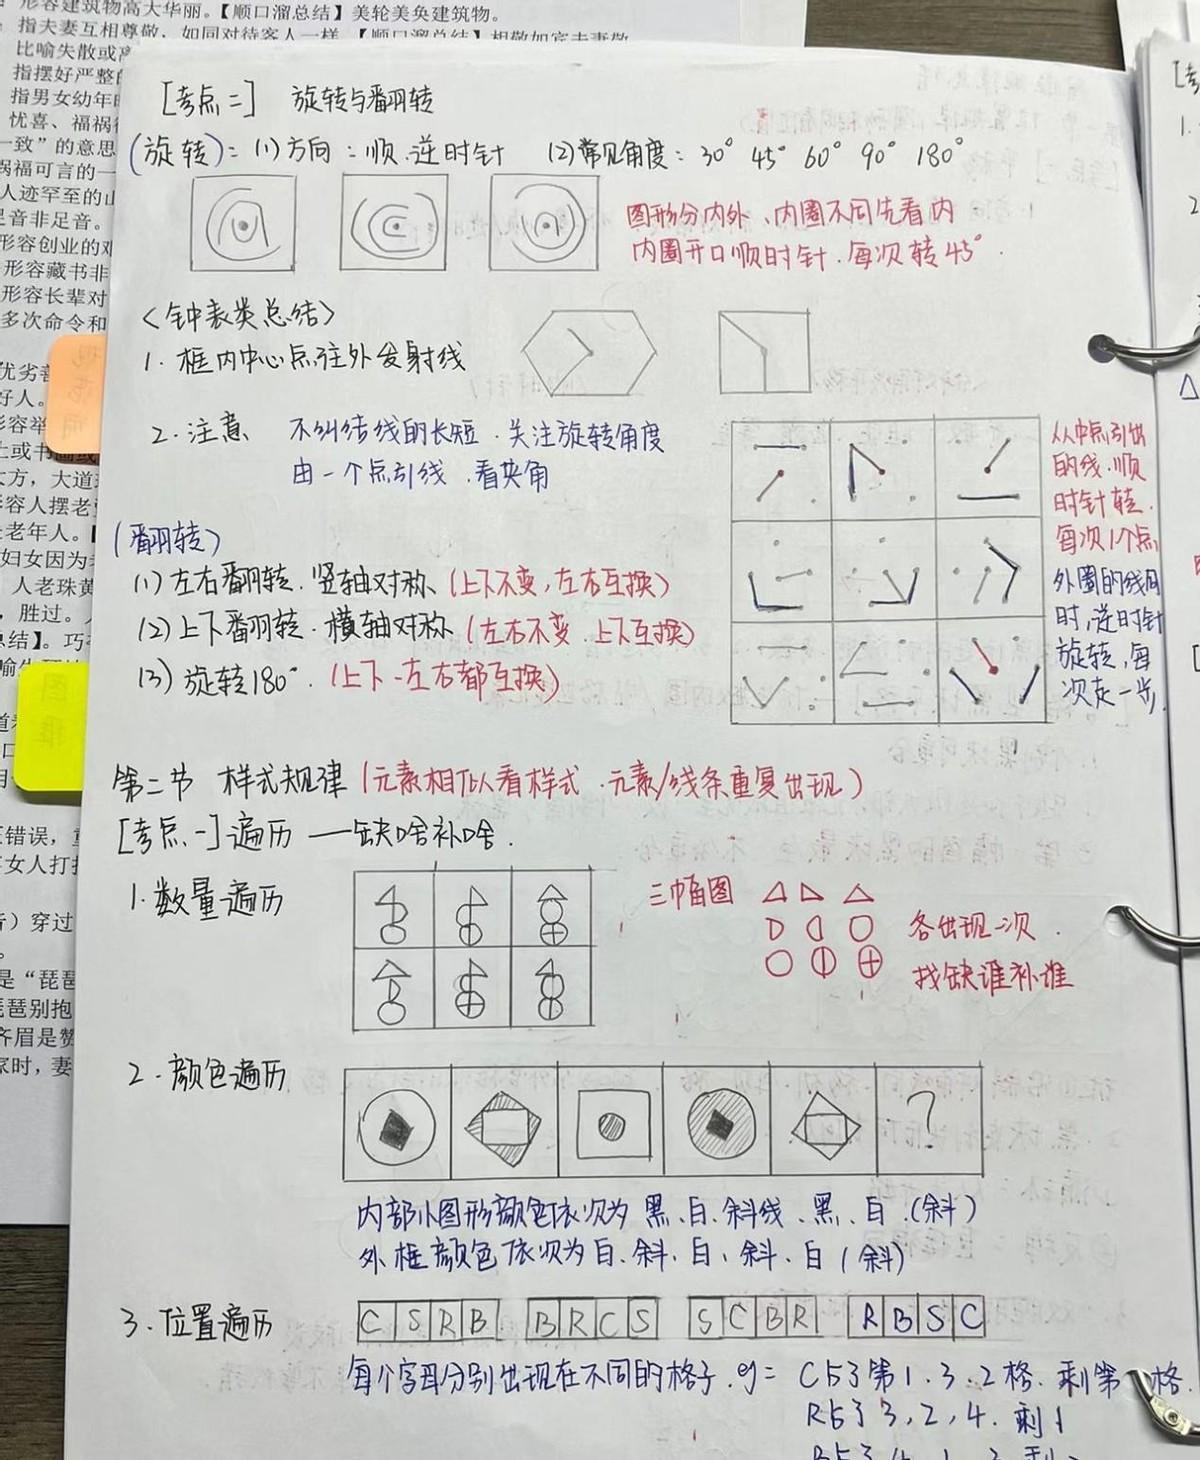 形容建筑物高大华丽。【顺口溜总结】美轮美奂建筑物。
指夫妻互相尊敬，如同对待客人一样。【顺口溜总结】相敬如宾夫妻敬
比喻失散或
指摆好严整
指男女幼年
忧喜、福祸
一致”的意思
祸福可言的一
人迹罕至的山
足音非足音。
形容创业的艰
形容藏书非
形容长辈对
多次命令和
优劣善
好人。
形容举
土或书
大方，大道
形容人摆老
老年人。
妇女因为
人老珠黄
，胜过。
总结】。巧
错误，
女人打扮
）穿过
是“琵琶
琵琶别抱
齐眉是赞
家时，妻
[考点二] 旋转与翻转
(旋转)：(1)方向：顺.逆时针 (2)常见角度：30° 45° 60° 90° 180°
图形分内外、内圈不同先看内
内圈开口顺时针.每次转45°.
<钟表类总结>
1.框内中心点往外发射线
2.注意 不纠结线的长短.关注旋转角度
由一个点引线.看夹角
从中点引出
的线.顺
时针转.
每次1个点
外圈的线同
时,逆时针
旋转,每
次走一步.
(翻转)
(1)左右翻转.竖轴对称(上下不变,左右互换)
(2)上下翻转.横轴对称(左右不变.上下互换)
(3)旋转180°.(上下-左右都互换)
第二节 样式规律(元素相似看样式.元素/线条重复出现)
[考点一]遍历——缺啥补啥.
1.数量遍历
三幅图
各出现一次.
找缺谁补谁
2.颜色遍历
?
内部小图形颜色依次为 黑、白、斜线、黑、白.(斜)
外框颜色依次为白、斜、白、斜、白(斜)
3.位置遍历
C S R B B R C S S C B R R B S C
每个字母分别出现在不同的格子.eg= C占了第1、3、2格.剩第 格.
R占了3,2,4.剩1